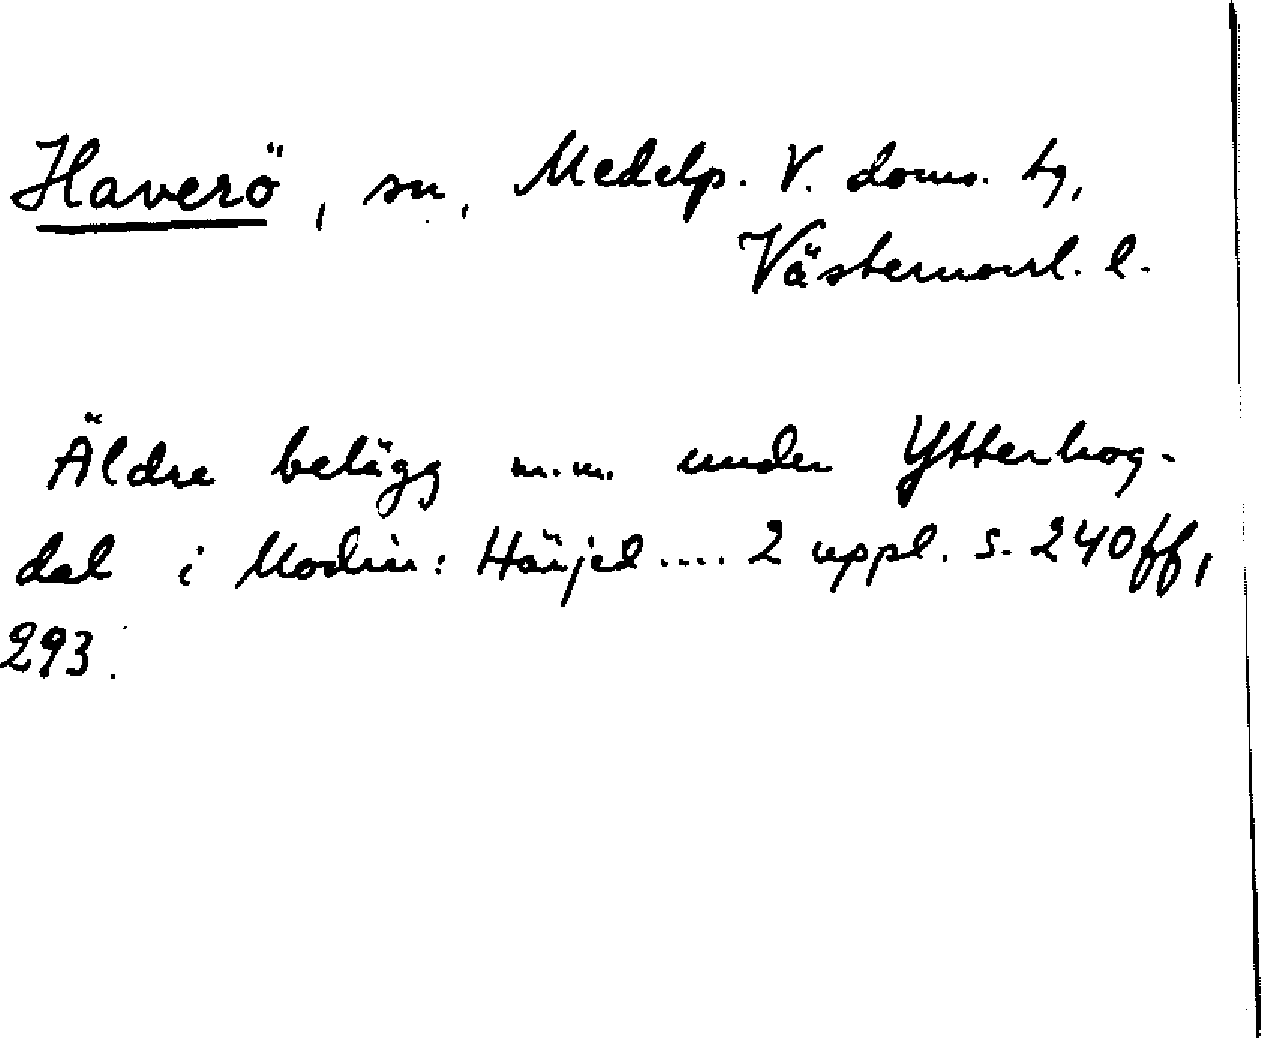 Haverö, sn, Medelp. V. doms. tg,
Västernorrl. l.
Äldre belägg m.m. under Ytterhog-
dal i Modin: Härjed.... 2 uppl. s. 240ff,
293.